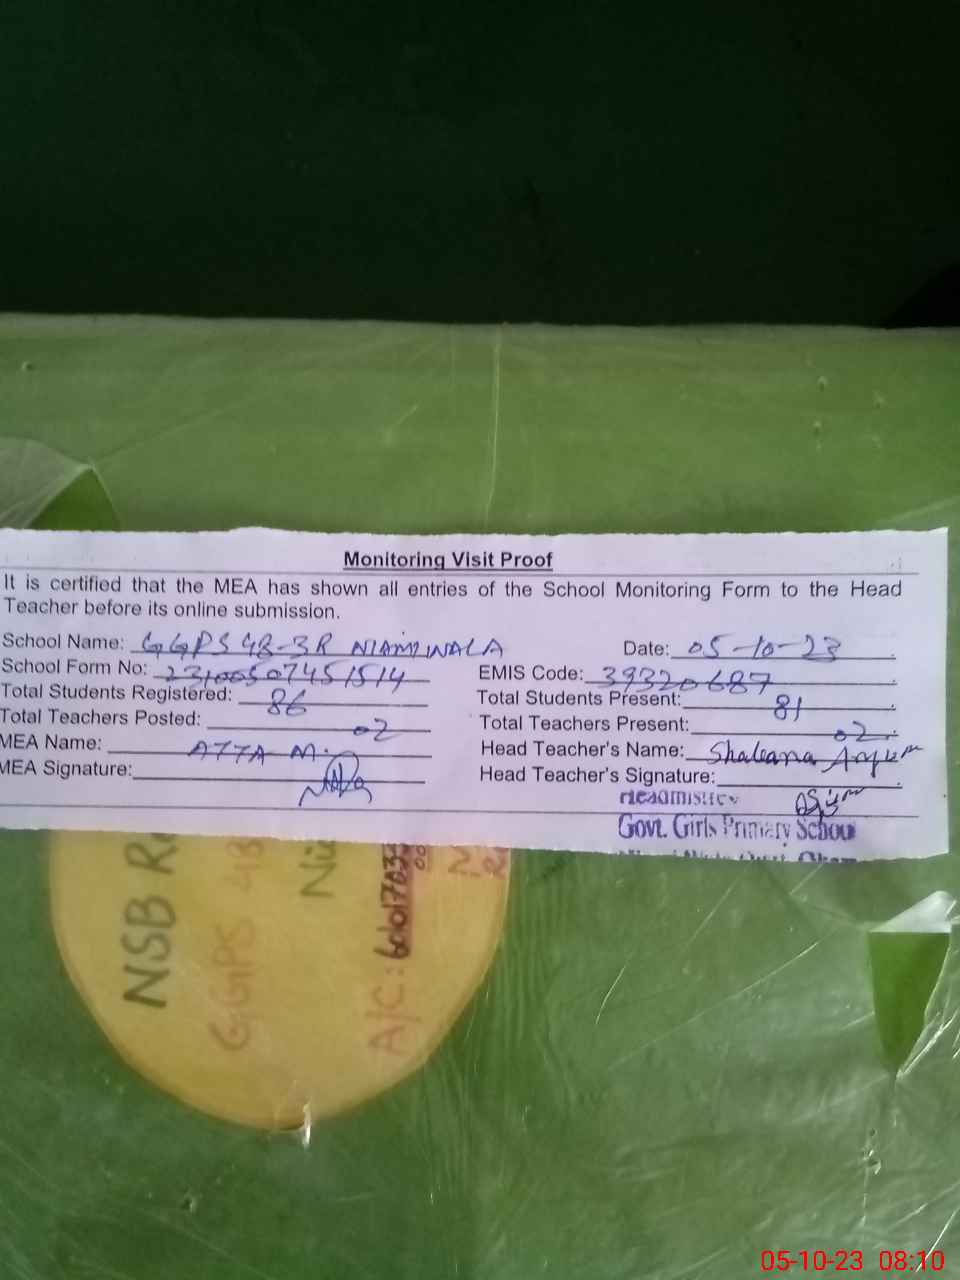 Monitoring Visit Proof
It is certified that the MEA has shown all entries of the School Monitoring Form to the Head
Teacher before its online submission.
School Name: GGPS 48-3R NIAMIWALA Date: 05-10-23
School Form No: 231005074 51514 EMIS Code: 39320687
Total Students Registered: 86 Total Students Present: 81
Total Teachers Posted: 02 Total Teachers Present: 02
MEA Name: ATTA M. Head Teacher's Name: Shabana Anjum
MEA Signature: Head Teacher's Signature:
Headmistress
Govt. Girls Primary School
NSB
GGPS 48
A/C:
05-10-23 08:10